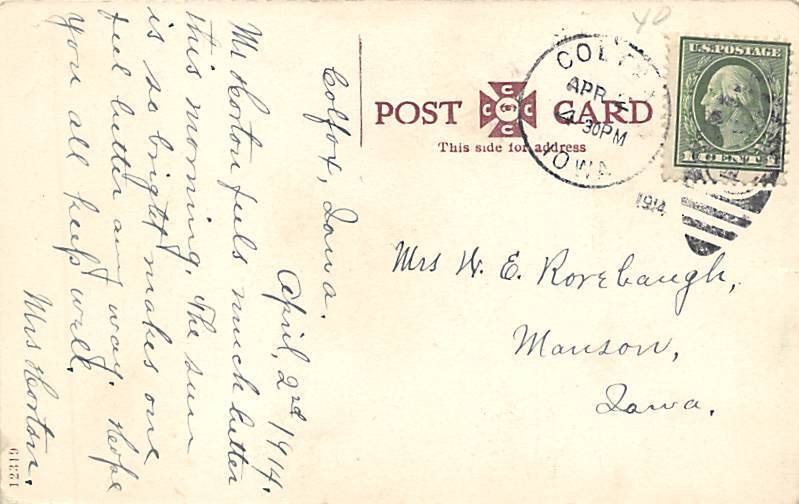 40
U.S. POSTAGE
1 CENT 1
COLFAX
APR 2
4 30PM
IOWA
1914
POST CARD
This side for address
Colfox, Iowa.
April, 2nd 1914.
Mr Horton feels much better
this morning. The sun
is so bright makes one
feel better any way. Hope
you all keep well.
Mrs Horton.
Mrs W. E. Rorebaugh,
Manson,
Iowa.
12319